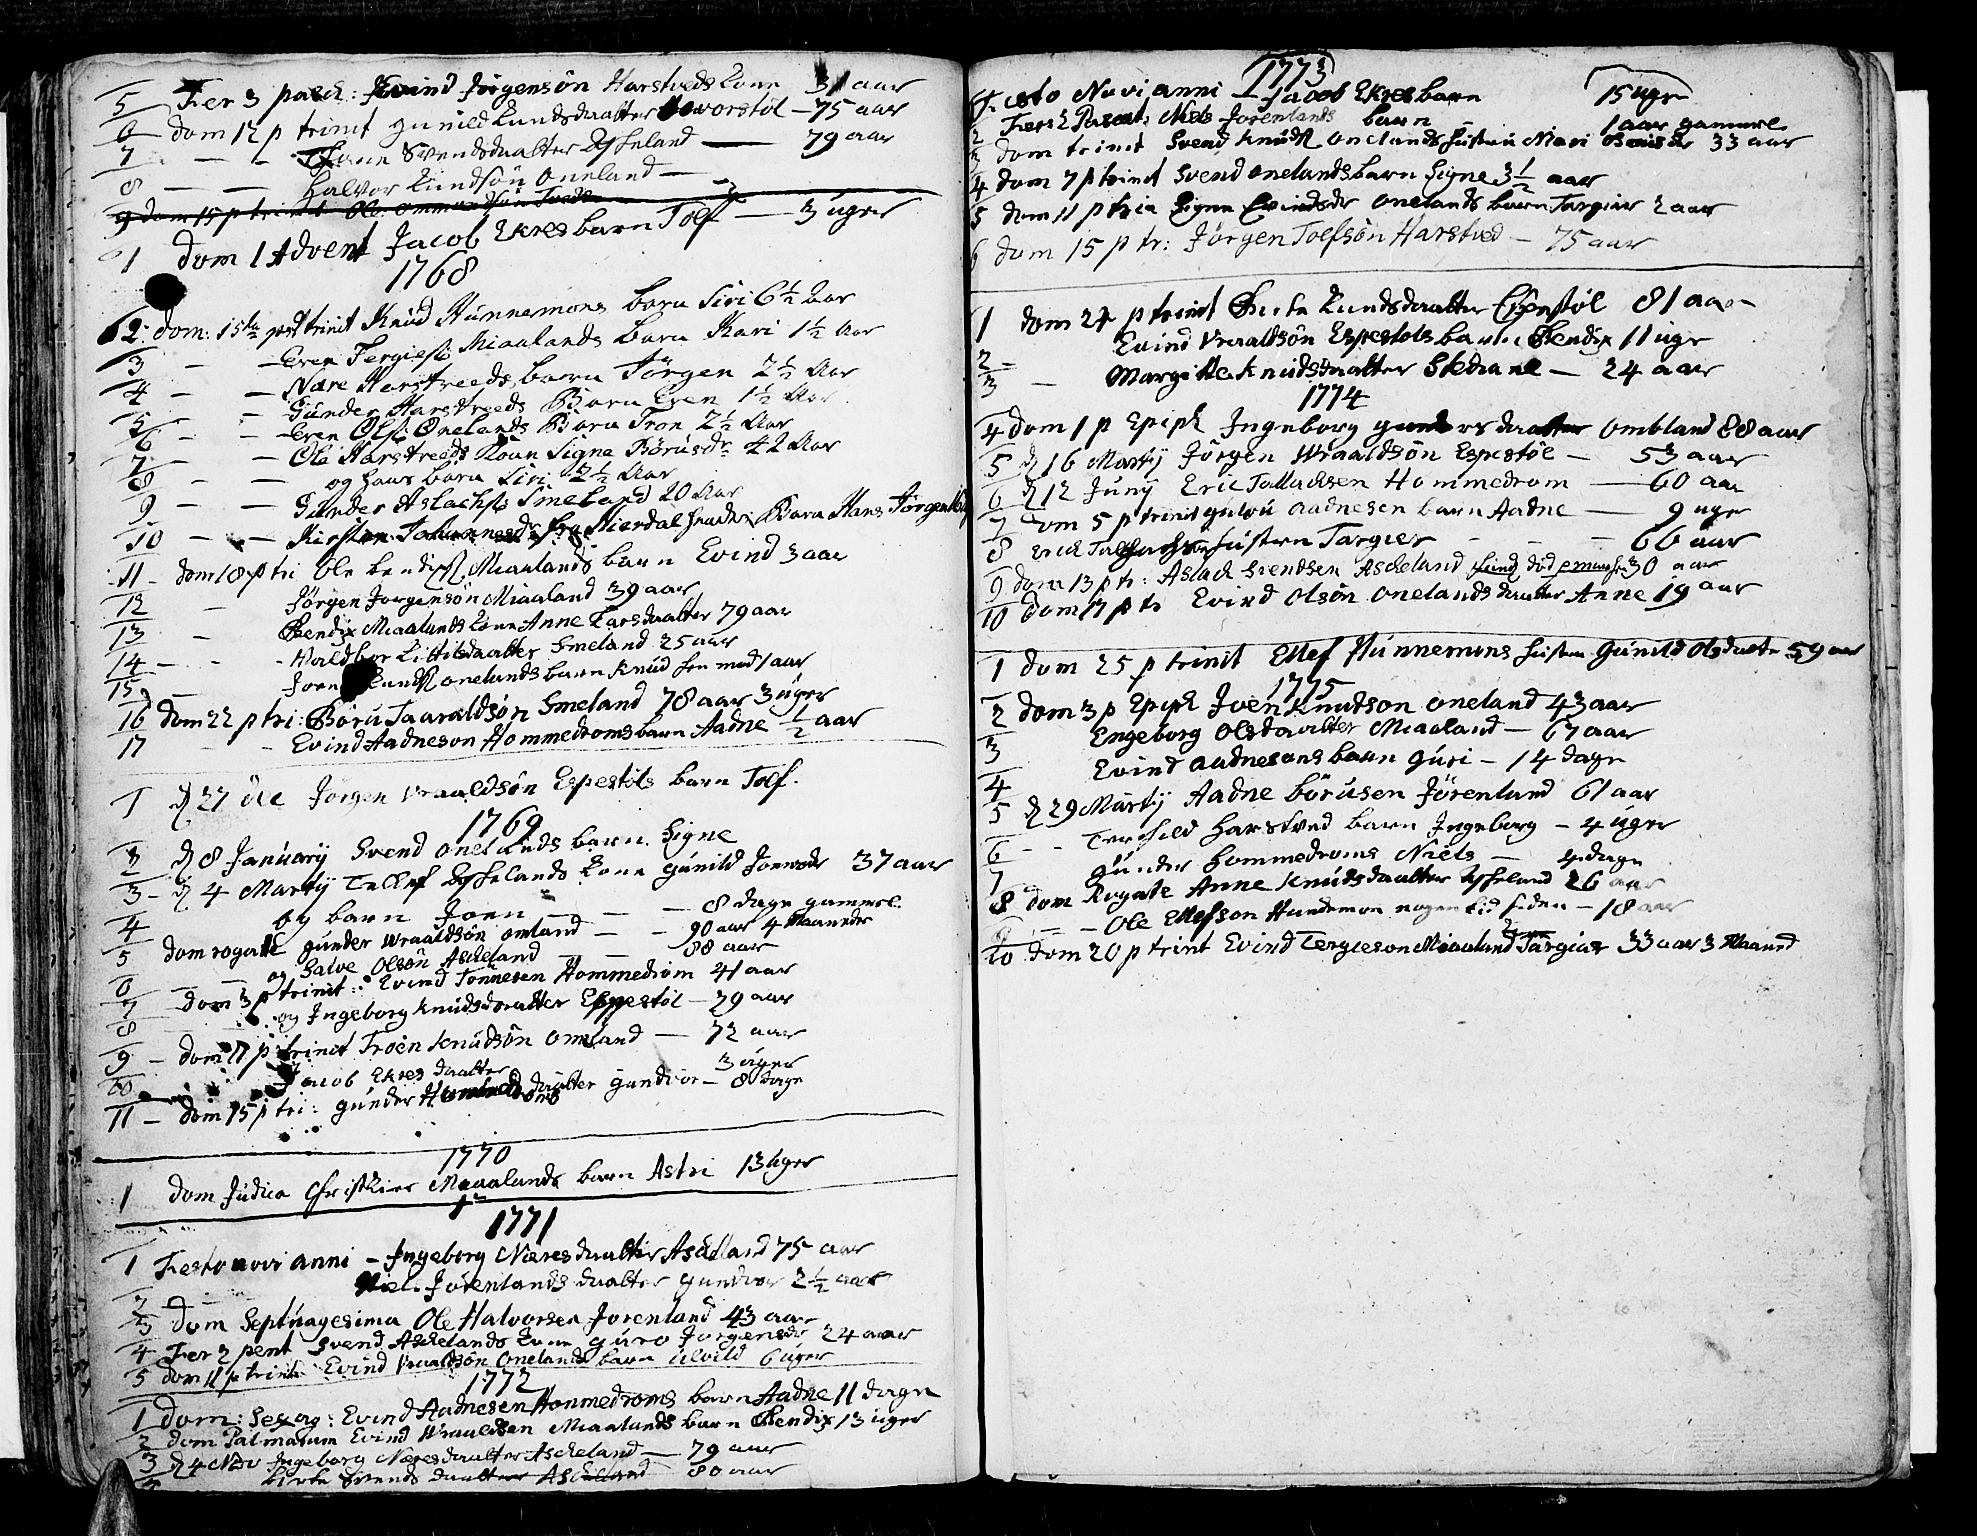 5 Fer 3 pasch: Evind Jörgensön Harstveds Kone 31 aar
6 dom 12 p trinit gunild Kundsdaatter Aavorstöl - 75 aar
7 - - - Svendsdaatter Eskeland - 79 aar
8 - - Halvor Kundsön Oneland -
9 dom 15 p trinit Ole
1 dom 1 Advent Jacob Ekres barn Tolf - 3 uger
1768
2. dom: 15de post trinit Knud Hunnemons barn Siri 6 1/2 Aar
3 - - Even Tergiess: Miaalands barn Kari 1 1/2 Aar
4 - - Nære Harstveeds barn Jörgen 2 1/2 Aar
5 - - Gunder Harstveeds Barn Even 1 1/2 Aar
6 - - Even Ols: Onelands Barn Tron 2 1/2 Aar
7 - - Ola Harstveeds Kone Signe Börusdr 42 Aar
8 - - og hans barn Siri 2 1/2 Aar
9 - - Gunder Aslachs: Smeland 20 Aar
10 - - Kirsten fra Mierdal Barn Hans Jörgen
11 - dom 18 p tri Ole bendixs: Miaalands barn Evind 3 aar
12 - Jörgen Jorgensön Miaaland 39 aar
13 - Bendix Miaalands Kone Anne Larsdaatter 79 aar
14 - - - Valdbor Kittilsdaatter Smeland 25 aar
15 - Joen onelands barn Knud 1 aar
16 dom 22 p tri: Böru Taaraldsön Smeland 78 aar 3 uger
17 - - Evind Aadneson Hommedroms barn Aadne 1/2 aar
1 d 27 dec Jorgen Vraaldsön Espestöls barn Tolf.
1769
2 d 8 Januarij Svend onelands barn Signe
3 - d 4 Martij Tellef Eskelands Kone gunild 37 aar
4 og barn Joen - - - 8 dage gammel
5 dom rogate gunder Wraaldsön omland - - 90 aar 4 Maaneder
6 - - og Salve Olsön Ascheland - - 88 aar
7 dom 3 p trinit: Evind Tönnesen Hommedrom 41 aar
8 og Ingeborg Knudsdaatter Espestöl - 29 aar
9 - dom 11 p trinit Troen Knudsön omland - 72 aar
10 Jacob Ekres daatter 3 uger
11 - dom 15 p tri: gunder daatter gundvor - 8 dage
1770
1 dom Judica Miaalands barn Astri 13 uger
1771
1 Festo novi anni - Ingeborg Næresdaatter Ascheland 75 aar
2 Niels Jörenlands daatter gundvor 2 1/2 aar
3 dom Septuagesima Ole Halvorsen Jorenland 43 aar
4 Fer 2 pent Svend Aschelands Kone guro Jorgensdr 24 aar
5 dom 11 p trinit Evind Vraaldsön Onelands barn Ulvild 6 uger
1772
1 dom: Sexag: Evind Aadnesen Hommedroms barn Aadne 11 dage
2 dom Palmarum Evind Wraaldsen Miaalands barn Bendix 13 uger
3 d 4 Nov Ingeborg Næresdaatter Ascheland - 79 aar
Birte Svends daatter Ascheland 80 aar
1773
Festo Novi anni Jacob Ekres barn 15 uger
2 Fer 2 Pascat: Niels Jorenlands barn 1 aar gammel
3 dom trinit Svend Knuds: onelands hustru Mari 33 aar
4 dom 7 p trinit Svend onelands barn Signe 3 1/2 aar
5 dom 11 p trin Signe Evindsdr onelands barn Targier 2 aar
6 dom 15 p tr: Jörgen Tolfsön Harstved - 75 aar
1 dom 24 p trinit Kundsdaatter 81 aar
2 - Evind Vraaldsön Espestols barn Bendix 11 uge
3 - Margitte Knudsdaatter Skeiane - 24 aar
1774
4 dom 1 p Epiph Ingeborg gundersdaatter Ombland 88 aar
5 d 16 Martij Jörgen Wraaldsön Espestöl - 53 aar
6 d 12 Junij Eric Tallachsen Hommedrom - 60 aar
7 dom 5 p trinit Aadnesen barn Aadne - 9 uger
8 Erich hustru Targier - - - 66 aar
9 dom 13 p tr: Aslach Svendsen Ascheland 30 aar
10 dom 17 p tr Evind Olsön onelands daatter Anne 19 aar
1 dom 25 p trinit Ellef Hunnemons hustru Gunild Olsdaatter 59 aar
1775
2 dom 3 p Epiph Joen Knudson oneland 43 aar
3 Engeborg Olsdaatter Miaaland - 67 aar
4 Evind Aadnesons barn Guri - 14 dage
5 d 29 Martij Aadne Börusen Jörenland 61 aar
6 - - Terchild Harstved barn Ingeborg - 4 uger
7 gunder Hommedroms Niels - 4 dage
8 dom Rogate Anne Knudsdaatter Eskeland 26 aar
9 - - Ole Ellefson Hundemon nogen tid siden - 18 aar
10 dom 20 p trinit Evind Tergieson Miaaland Targier 33 aar 3 Maand